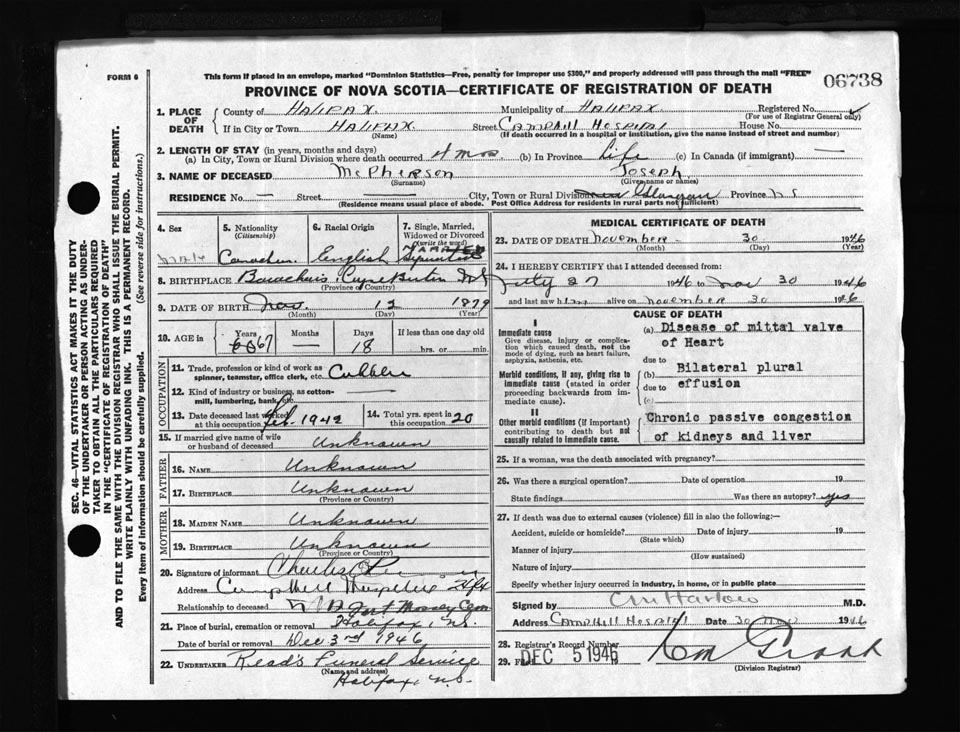 FORM 6
This form if placed in an envelope, marked "Dominion Statistics—Free, penalty for improper use $300," and properly addressed will pass through the mail "FREE"
06738
PROVINCE OF NOVA SCOTIA—CERTIFICATE OF REGISTRATION OF DEATH
1. PLACE OF DEATH
County of HALIFAX. Municipality of HALIFAX. Registered No.
(For use of Registrar General only)
If in City or Town HALIFAX Street CAMPHILL HOSPITAL House No.
(Name) (If death occurred in a hospital or institution, give the name instead of street and number)
2. LENGTH OF STAY (in years, months and days)
(a) In City, Town or Rural Division where death occurred 4 mos (b) In Province Life (c) In Canada (if immigrant) —
3. NAME OF DECEASED McPherson Joseph
(Surname) (Given name or names)
RESIDENCE No. — Street City, Town or Rural Division Province NS
(Residence means usual place of abode. Post Office Address for residents in rural parts not sufficient)
4. Sex
5. Nationality
(Citizenship)
6. Racial Origin
7. Single, Married, Widowed or Divorced
(write the word)
male Canadian English
8. BIRTHPLACE
(Province or Country)
9. DATE OF BIRTH Nov. 12 1879
(Month) (Day) (Year)
10. AGE in
Years Months Days If less than one day old
67 — 18 hrs. or min.
OCCUPATION
11. Trade, profession or kind of work as spinner, teamster, office clerk, etc. Cobbler
12. Kind of industry or business, as cotton-mill, lumbering, bank, etc. —
13. Date deceased last worked at this occupation Feb. 1942
14. Total yrs. spent in 20
15. If married give name of wife or husband of deceased Unknown
FATHER
16. NAME Unknown
17. BIRTHPLACE Unknown
(Province or Country)
MOTHER
18. MAIDEN NAME Unknown
19. BIRTHPLACE Unknown
(Province or Country)
20. Signature of informant Charles
Address Camp Hill Hospital Hfx
Relationship to deceased
21. Place of burial, cremation or removal Fort Massey Cem Halifax, N.S.
Date of burial or removal Dec 3rd 1946
22. UNDERTAKER Read's Funeral Service
(Name and address)
Halifax, N.S.
MEDICAL CERTIFICATE OF DEATH
23. DATE OF DEATH November 30 1946
(Month) (Day) (Year)
24. I HEREBY CERTIFY that I attended deceased from:
July 27 1946 to Nov 30 1946
and last saw him alive on November 30 1946
CAUSE OF DEATH
I
Immediate cause
Give disease, injury or complication which caused death, not the mode of dying, such as heart failure, asphyxia, asthenia, etc.
(a) Disease of mittal valve
of Heart
due to
Morbid conditions, if any, giving rise to immediate cause (stated in order proceeding backwards from immediate cause).
(b) Bilateral plural
due to effusion
(c)
II
Other morbid conditions (if important) contributing to death but not causally related to immediate cause.
Chronic passive congestion
of kidneys and liver
25. If a woman, was the death associated with pregnancy?
26. Was there a surgical operation? Date of operation 19
State findings Was there an autopsy? yes
27. If death was due to external causes (violence) fill in also the following:—
Accident, suicide or homicide? Date of injury 19
(State which)
Manner of injury
(How sustained)
Nature of injury
Specify whether injury occurred in industry, in home, or in public place
Signed by CM Harlow M.D.
Address CAMPHILL HOSPITAL Date 30 Nov 1946
28. Registrar's Record Number
29. Filed DEC 5 1946
(Division Registrar)
SEC. 46—VITAL STATISTICS ACT MAKES IT THE DUTY
OF THE UNDERTAKER OR PERSON ACTING AS UNDERTAKER TO OBTAIN ALL THE PARTICULARS REQUIRED
IN THE "CERTIFICATE OF REGISTRATION OF DEATH"
AND TO FILE THE SAME WITH THE DIVISION REGISTRAR WHO SHALL ISSUE THE BURIAL PERMIT.
WRITE PLAINLY WITH UNFADING INK. THIS IS A PERMANENT RECORD.
Every item of information should be carefully supplied. (See reverse side for instructions.)